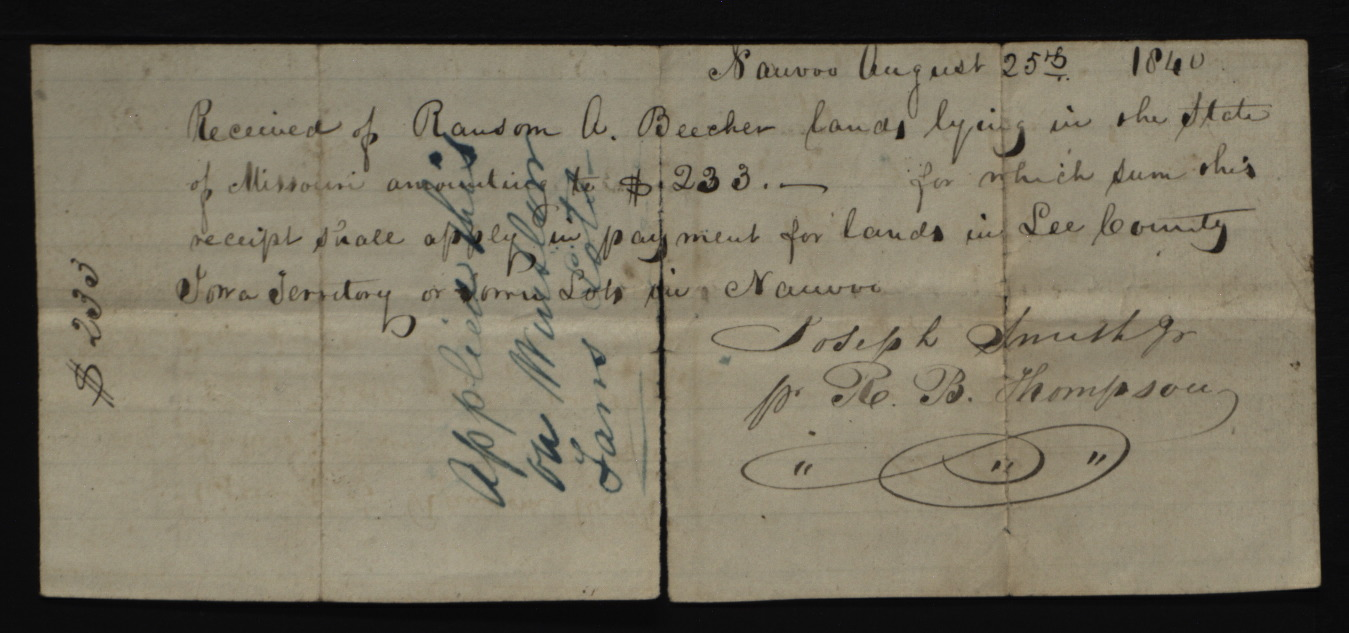 Nauvoo August 25th 1840
Received of Ransom A. Beecher lands lying in the State
of Missouri amounting to $ 233.— for which sum this
receipt shall apply in payment for lands in Lee County
Iowa Territory or town Lots in Nauvoo
Joseph Smith Jr
pr R. B. Thompson
" " "
$ 233
Applied this
on
Lots